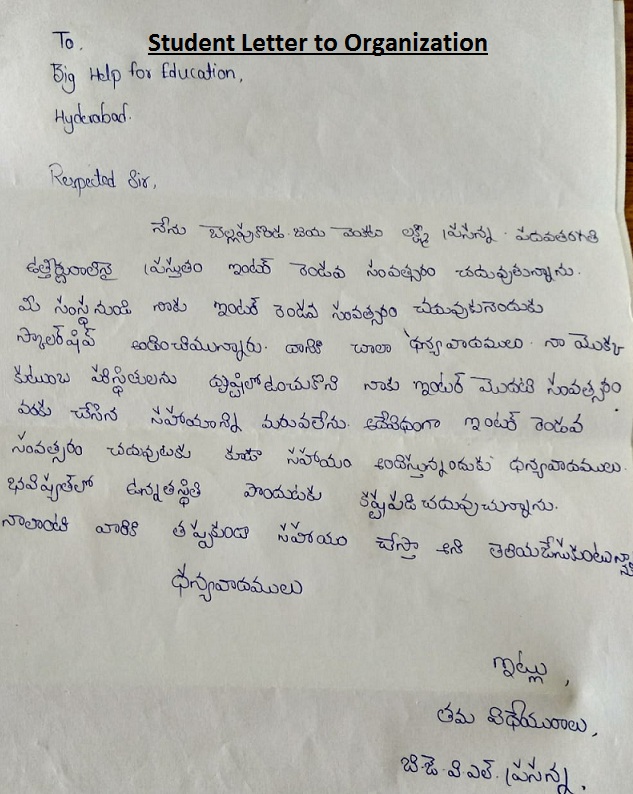 Student Letter to Organization
To,
Big Help for Education,
Hyderabad.
Respected Sir,
నేను బెల్లపుకొండ జయ వెంకట లక్ష్మీ ప్రసన్న. పదవతరగతి
ఉత్తీర్ణురాలినై ప్రస్తుతం ఇంటర్ రెండవ సంవత్సరం చదువుతున్నాను.
మీ సంస్థ నుండి నాకు ఇంటర్ రెండవ సంవత్సరం చదువుకునెందుకు
స్కాలర్‌షిప్ అందించియున్నారు. దానికి చాలా ధన్యవాదములు. నా యొక్క
కుటుంబ పరిస్థితులను దృష్టిలో ఉంచుకొని నాకు ఇంటర్ మొదటి సంవత్సరం
వరకు చేసిన సహాయాన్ని మరువలేను. అదేవిధంగా ఇంటర్ రెండవ
సంవత్సరం చదువుటకు కూడా సహాయం అందిస్తున్నందుకు ధన్యవాదములు.
భవిష్యత్‌లో ఉన్నతస్థితి పొందుటకు కష్టపడి చదువుచున్నాను.
నాలాంటి వారికి తప్పకుండా సహాయం చేస్తా అని తెలియజేసుకుంటున్నా
ధన్యవాదములు
ఇట్లు,
తమ విధేయురాలు,
బి.జె.వి.ఎల్. ప్రసన్న.